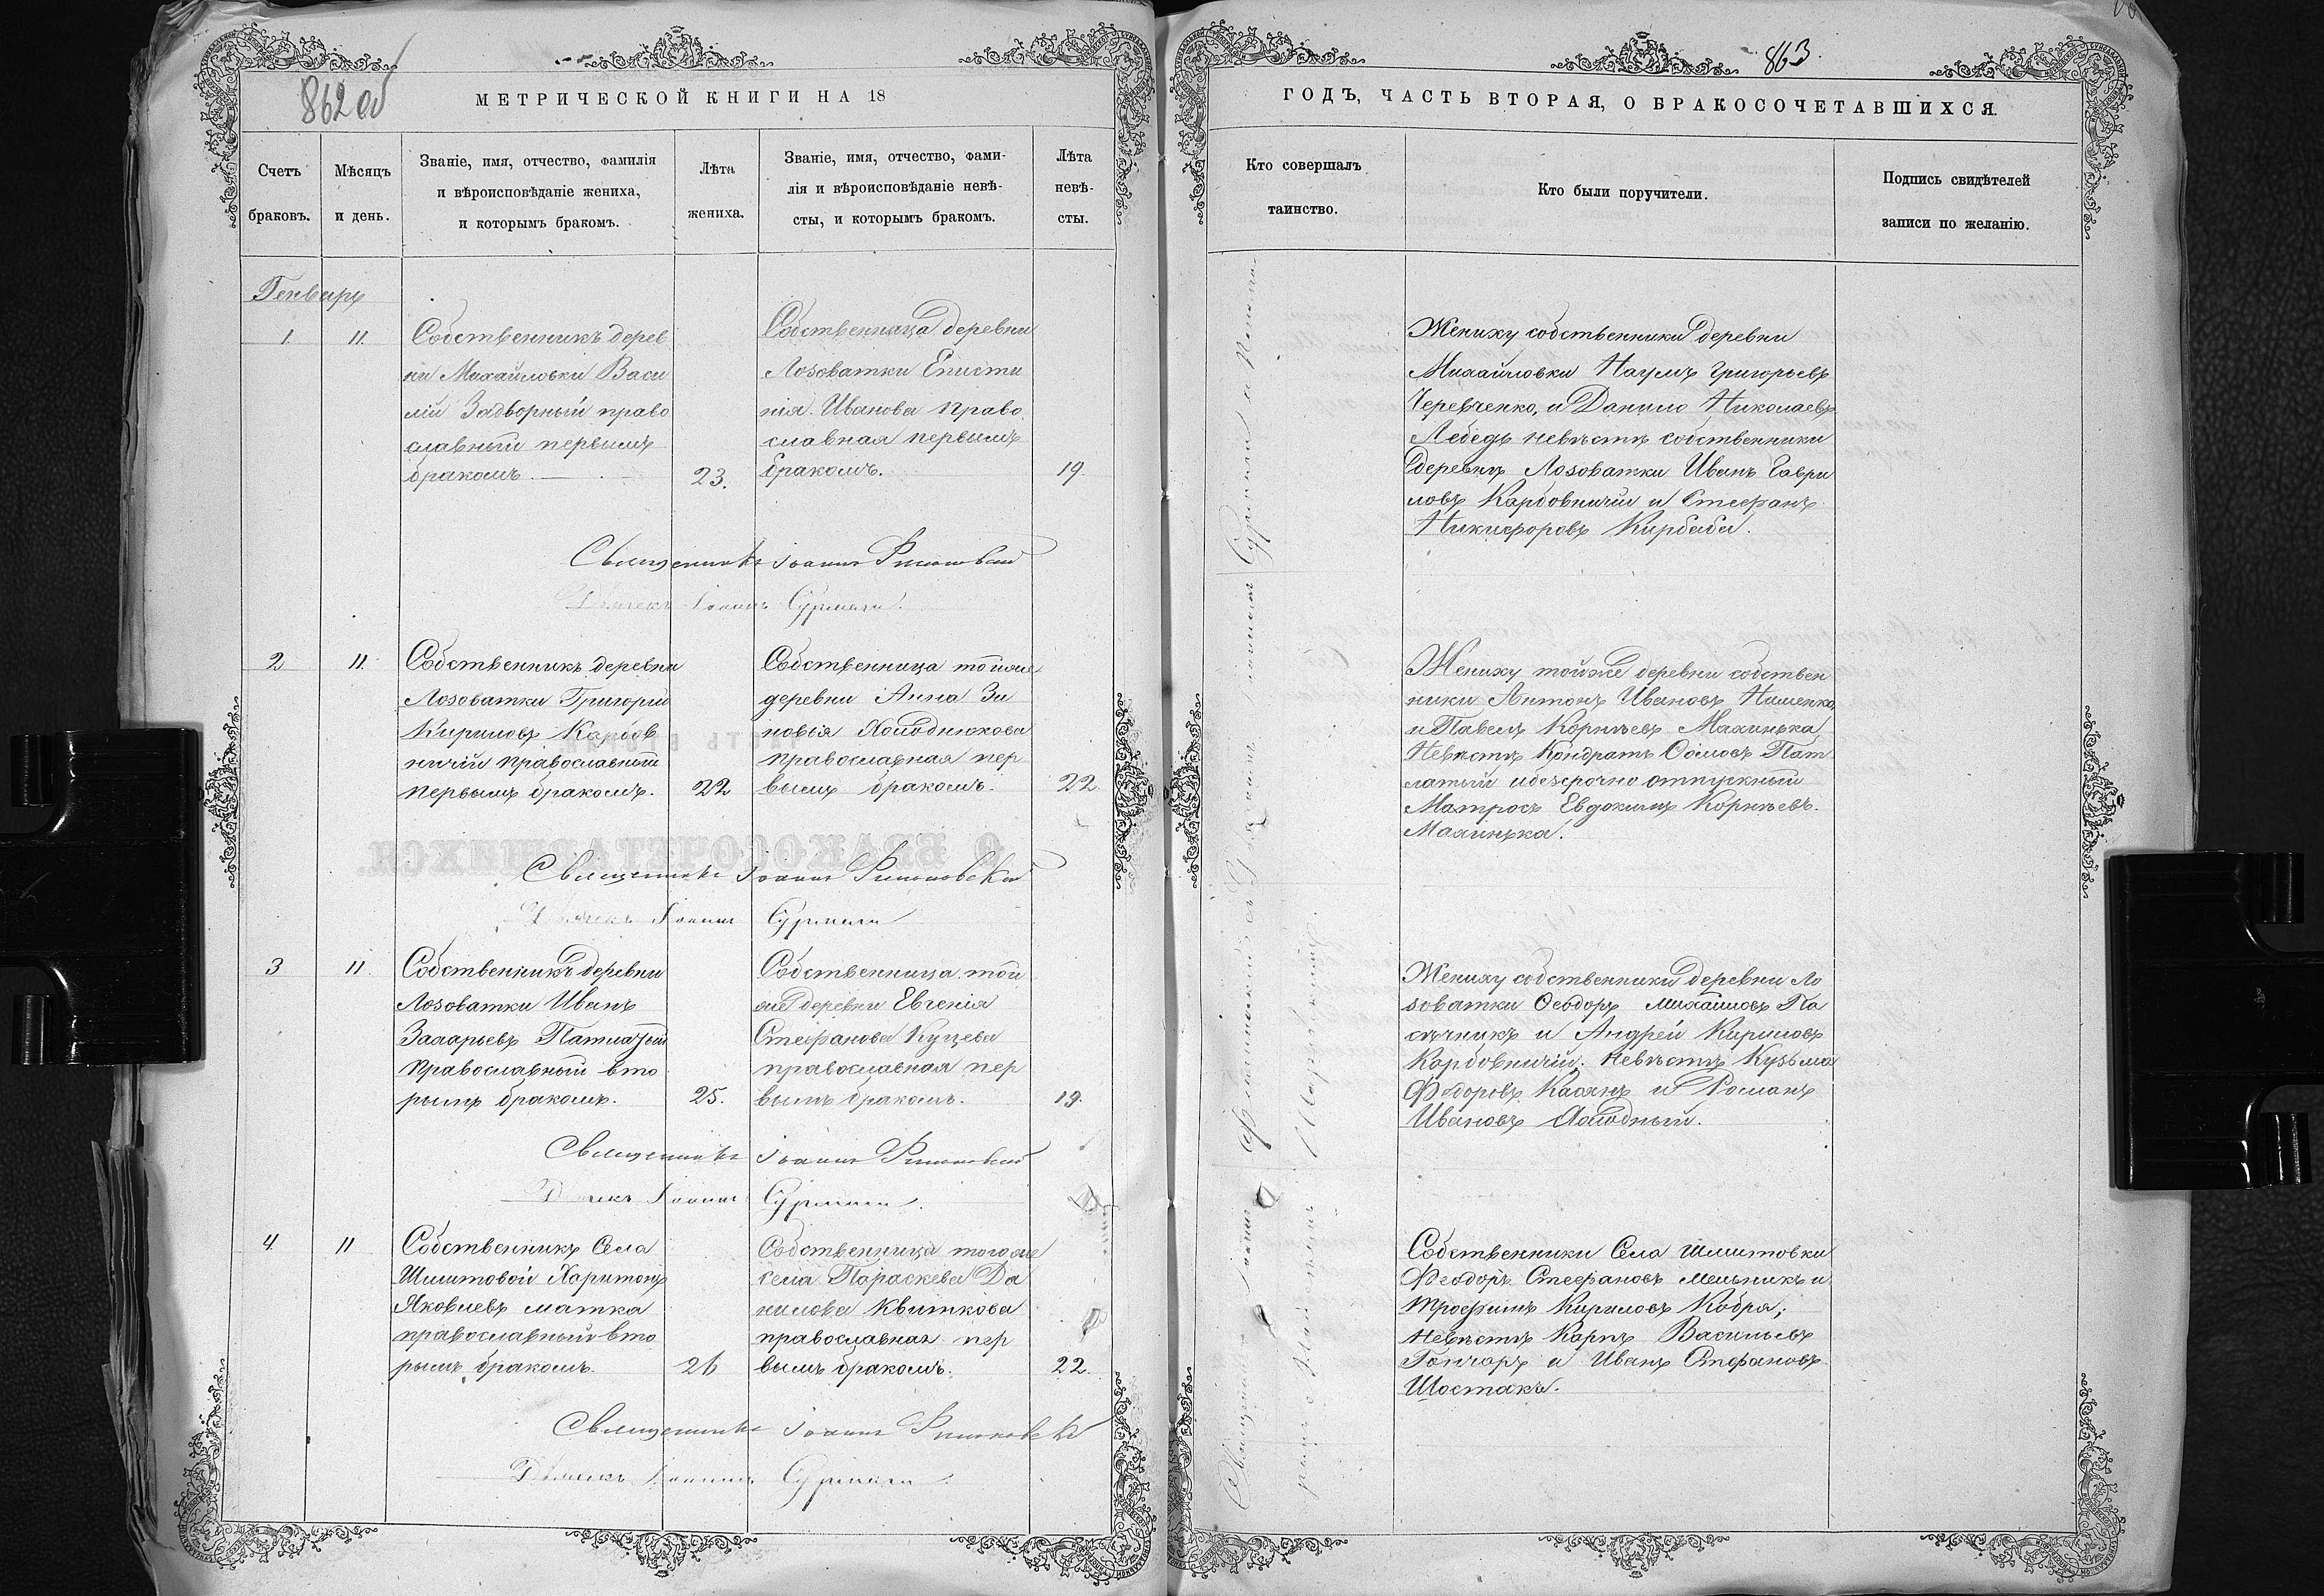 862 об
МЕТРИЧЕСКОЙ КНИГИ НА 18
Счетъ браковъ.
Мѣсяцъ и день.
Званіе, имя, отчество, фамилія
и вѣроисповѣданіе жениха,
и которымъ бракомъ.
Лѣта жениха.
Званіе, имя, отчество, фами-
лія и вѣроисповѣданіе невѣ-
сты, и которымъ бракомъ.
Лѣта невѣ-
сты.
Генварь
1
11
Собственникъ дерев
ни Михайловки Васи
лій Задворный право
славный первымъ
бракомъ.
23.
Собственница деревни
Лозоватки Еписти
нія Иванова право
славная первымъ
бракомъ.
19.
Священникъ Іоаннъ
Дьячекъ Іоаннъ
2
11
Собственникъ деревни
Лозоватки Григорій
Кириловъ Карбов
ничій православный
первымъ бракомъ.
22
Собственница тойже
деревни Анна Зи
новія Холоднюкова
православная пер
вымъ бракомъ.
22
Священникъ Іоаннъ
Дьячекъ Іоаннъ
3
11
Собственникъ деревни
Лозоватки Иванъ
Захарьевъ Патлатый
православный вто
рымъ бракомъ.
25.
Собственница той
же деревни Евгенія
Стефанова Куцева
православная пер
вымъ бракомъ.
19.
Священникъ Іоаннъ
Дьячекъ Іоаннъ
4
11
Собственникъ Села
Шмитовой Харитонъ
Яковлевъ матка
православный вто
рымъ бракомъ.
26
Собственница тогоже
села Параскева Да
нилова Квиткова
православная пер
вымъ бракомъ.
22.
Священникъ Іоаннъ
Дьячекъ Іоаннъ
863.
ГОДЪ, ЧАСТЬ ВТОРАЯ, О БРАКОСОЧЕТАВШИХСЯ.
Кто совершалъ
таинство.
Кто были поручители.
Подпись свидѣтелей
записи по желанію.
Жениху собственники деревни
Михайловки Наумъ Григорьевъ
Черевченко, и Данило Николаевъ
Лебедь невѣстѣ собственники
деревни Лозоватки Иванъ Гаври
ловъ Карбовничій и Стефанъ
Никифоровъ Кирбаба.
Жениху тойже деревни собствен
ники Антонъ Ивановъ
и Павелъ Корнѣевъ Махинька
Невѣстѣ Кондратъ Пат
латый и безсрочно отпускный
Матросъ Евдокимъ Корнѣевъ
Махинька.
Жениху собственники деревни Ло
зоватки Ѳеодоръ Михайловъ Па
сѣчникъ и Андрей Кириловъ
Карбовничій; невѣстѣ Кузьма
Федоровъ Касянъ и Романъ
Ивановъ Холодный.
Собственники Села Шмитовки
Феодоръ Стефановъ Мельникъ и
Трофимъ Кириловъ Кобря;
невѣстѣ Карпъ Васильевъ
Гончаръ и Иванъ Стефановъ
Шостакъ.